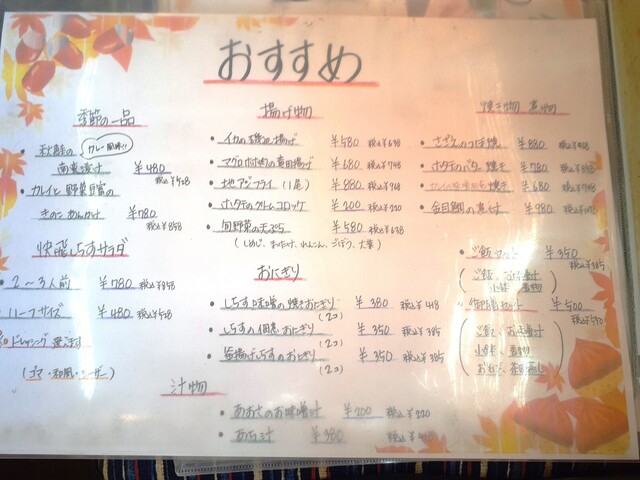 おすすめ
季節の一品
秋鮭の
カレー風味!!
南蛮漬け ¥480 税込¥528
カレイと野菜豆富の
きのこあんかけ ¥780
税込¥858
しらすサラダ
2〜3人前 ¥780 税込¥858
ハーフサイズ ¥480 税込¥528
ドレッシング 選べます
(ゴマ・和風・シーザー)
揚げ物
・イカの磯辺揚げ ¥580 税込¥638
・マグロ ¥680 税込¥748
・地アジフライ(1尾) ¥880 税込¥968
・ホタテのクリームコロッケ ¥200 税込¥220
・旬野菜の天ぷら ¥580 税込¥638
(しめじ、まいたけ、れんこん、ごぼう、大葉)
おにぎり
・しらす味噌の焼きおにぎり ¥380 税込¥418
(2コ)
・しらすの佃煮おにぎり ¥350 税込¥385
(2コ)
・釜揚げしらすのおにぎり ¥350 税込¥385
(2コ)
汁物
・あおさのお味噌汁 ¥200 税込¥220
・あら汁 ¥380 税込
焼き物 煮物
・さざえのつぼ焼 ¥880 税込
・ホタテのバター焼き ¥780 税込¥858
焼き ¥680 税込¥748
・金目鯛の煮付 ¥980 税込
・ご飯セット ¥350
税込¥385
(ご飯、お味噌汁
小鉢、香物)
セット ¥500
税込¥550
(ご飯、お味噌汁
小鉢、香物
茶碗蒸し)